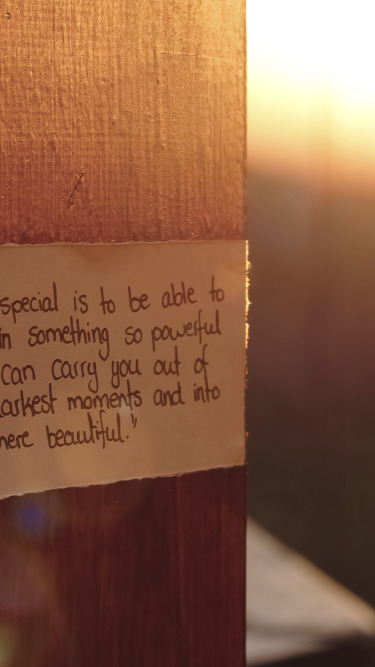 special is to be able to
in something so powerful
can carry you out of
arkest moments and into
here beautiful."